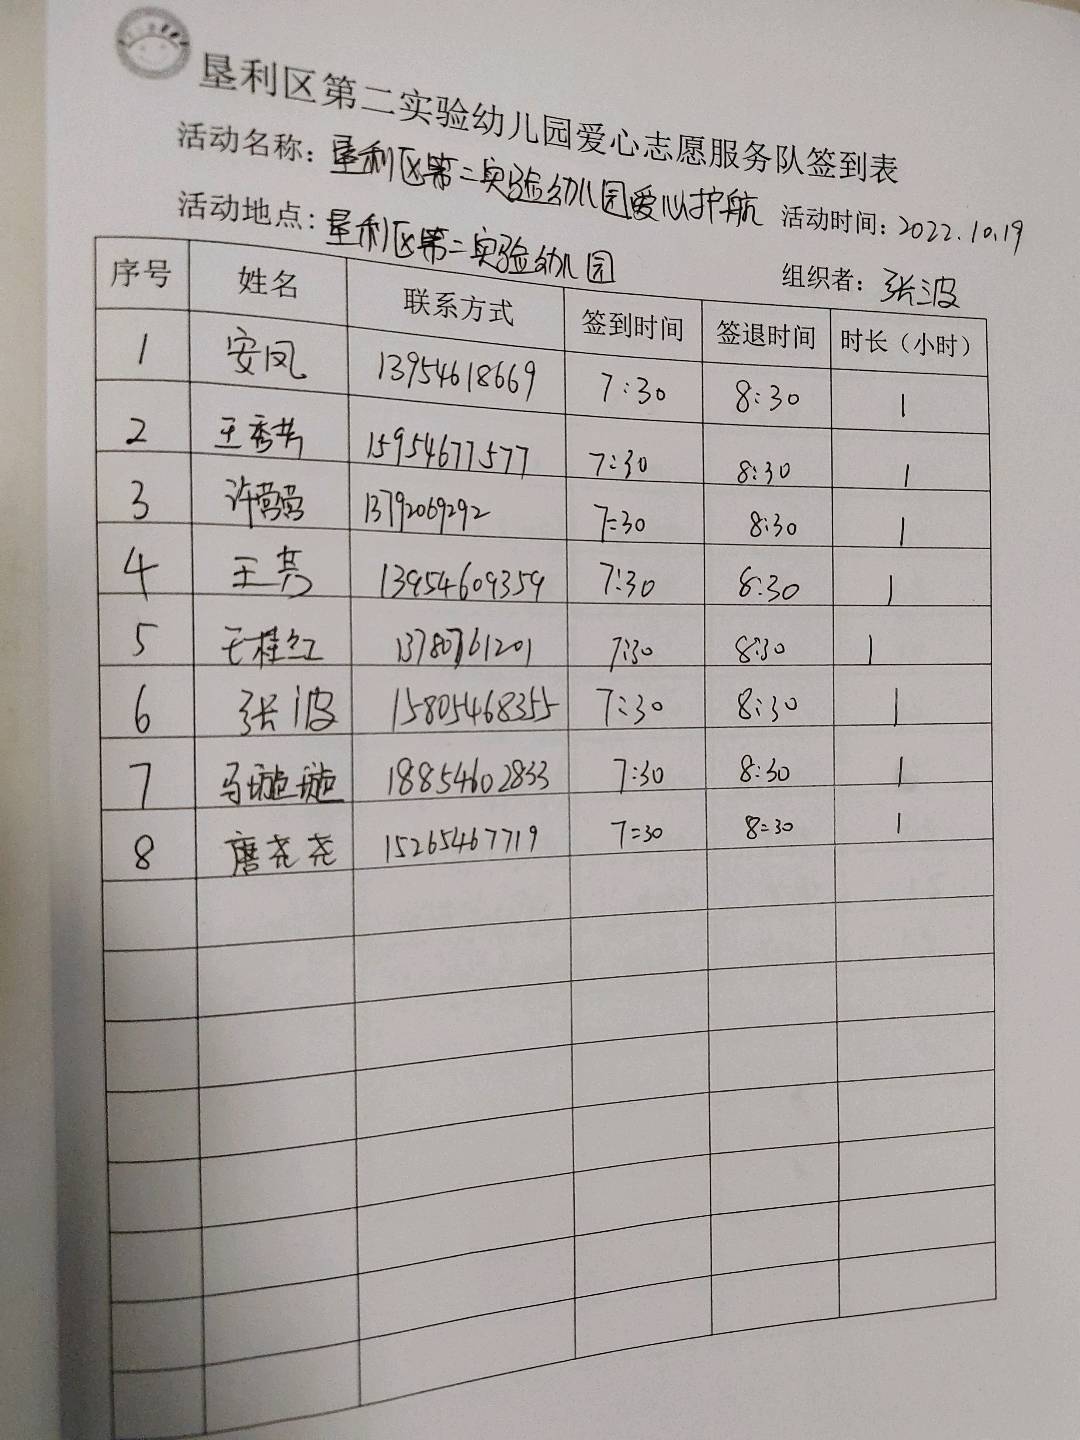 垦利区第二实验幼儿园爱心志愿服务队签到表
活动名称：垦利区第二实验幼儿园爱心护航 活动时间：2022.10.19
活动地点：垦利区第二实验幼儿园 组织者：张波
序号 姓名 联系方式 签到时间 签退时间 时长（小时）
1 安凤 13954618669 7:30 8:30 1
2 王秀芳 15954677577 7:30 8:30 1
3 许莺莺 13792069292 7:30 8:30 1
4 王芳 13954609359 7:30 8:30 1
5 王桂红 13780761201 7:30 8:30 1
6 张波 15805468355 7:30 8:30 1
7 马璇璇 18854602833 7:30 8:30 1
8 唐尧尧 15265467719 7:30 8:30 1